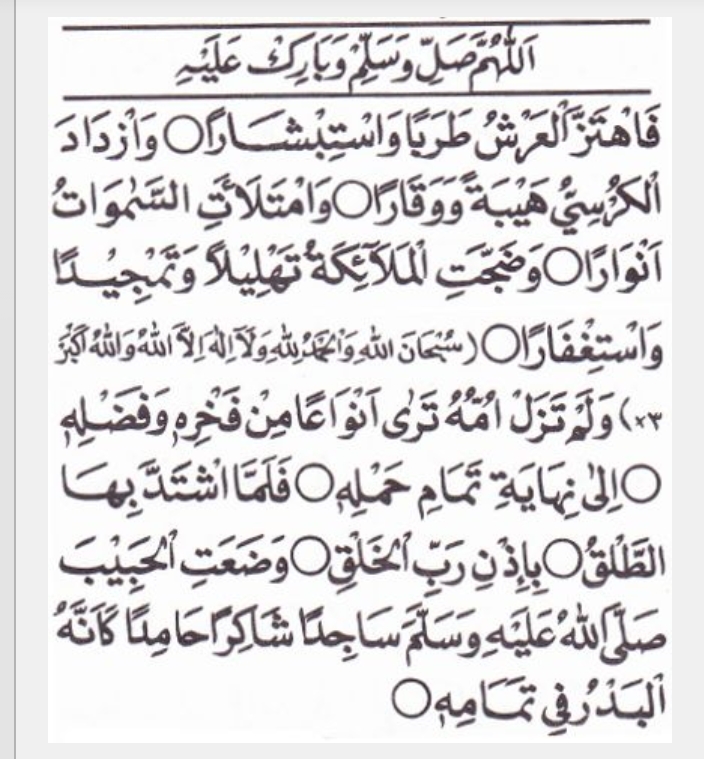 اَللّٰهُمَّ صَلِّ وَسَلِّمْ وَبَارِكْ عَلَيْهِ
فَاهْتَزَّ الْعَرْشُ طَرَبًا وَاسْتِبْشَارًا ○ وَازْدَادَ
الْكُرْسِيُّ هَيْبَةً وَوَقَارًا ○ وَامْتَلَأَتِ السَّمٰوَاتُ
اَنْوَارًا ○ وَضَجَّتِ الْمَلَآئِكَةُ تَهْلِيْلًا وَتَمْجِيْدًا
وَاسْتِغْفَارًا ○ (سُبْحَانَ اللهِ وَالْحَمْدُ لِلّٰهِ وَلَآ اِلٰهَ اِلَّا اللهُ وَاللهُ اَكْبَرُ
×٣) وَلَمْ تَزَلْ اُمُّهُ تَرٰى اَنْوَاعًا مِنْ فَخْرِهِ وَفَضْلِهِ
○ اِلٰى نِهَايَةِ تَمَامِ حَمْلِهِ ○ فَلَمَّا اشْتَدَّ بِهَا
الطَّلْقُ ○ بِإِذْنِ رَبِّ الْخَلْقِ ○ وَضَعَتِ الْحَبِيْبَ
صَلَّى اللهُ عَلَيْهِ وَسَلَّمَ سَاجِدًا شَاكِرًا حَامِدًا كَاَنَّهُ
الْبَدْرُ فِي تَمَامِهِ ○